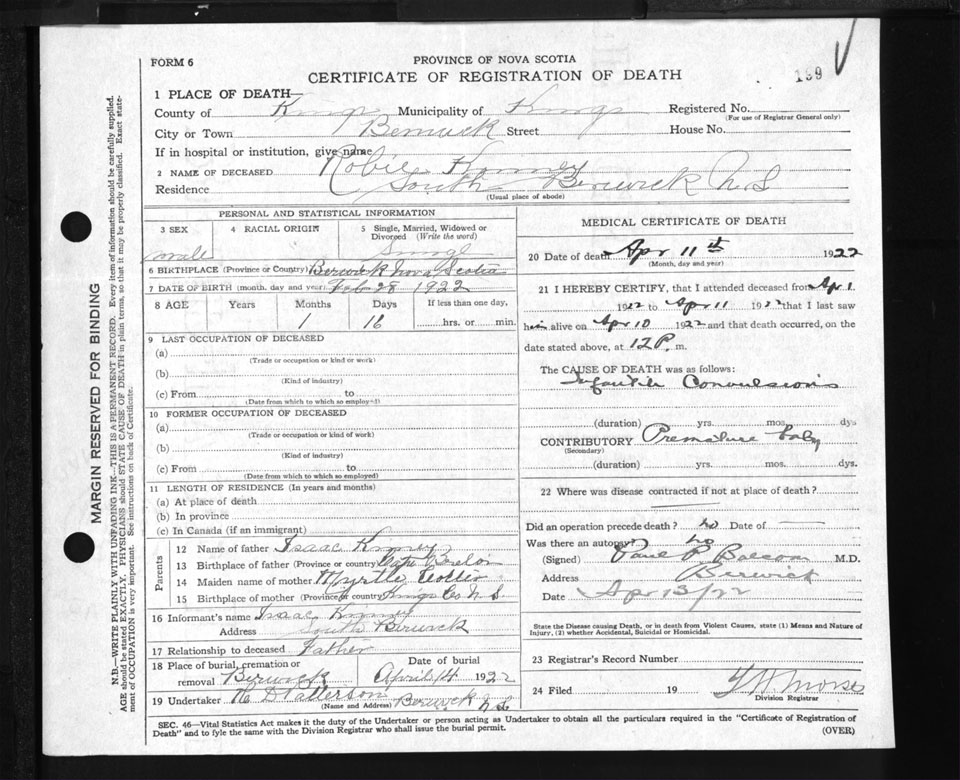 FORM 6
PROVINCE OF NOVA SCOTIA
CERTIFICATE OF REGISTRATION OF DEATH
199
1 PLACE OF DEATH—
County of Kings Municipality of Kings Registered No.
(For use of Registrar General only)
City or Town Berwick Street House No.
If in hospital or institution, give name
2 NAME OF DECEASED Robie
Residence South Berwick N.S
(Usual place of abode)
PERSONAL AND STATISTICAL INFORMATION
3 SEX 4 RACIAL ORIGIN 5 Single, Married, Widowed or Divorced (Write the word)
male Singl
6 BIRTHPLACE (Province or Country) Berwick Nova Scotia
7 DATE OF BIRTH (month, day and year) Feb 28 1922
8 AGE Years Months Days If less than one day,
1 16 hrs. or min.
9 LAST OCCUPATION OF DECEASED
(a)
(Trade or occupation or kind or work)
(b)
(Kind of industry)
(c) From to
(Date from which to which so employed)
10 FORMER OCCUPATION OF DECEASED
(a)
(Trade or occupation or kind of work)
(b)
(Kind of industry)
(c) From to
(Date from which to which so employed)
11 LENGTH OF RESIDENCE (In years and months)
(a) At place of death
(b) In province
(c) In Canada (if an immigrant)
Parents
12 Name of father Isaac
13 Birthplace of father (Province or country) Cape Breton
14 Maiden name of mother Myrtle
15 Birthplace of mother (Province or country) Kings Co N.S.
16 Informant's name Isaac
Address South Berwick
17 Relationship to deceased Father
18 Place of burial, cremation or removal Berwick Date of burial April 14 1922
19 Undertaker H D Patterson Berwick N.S
(Name and Address)
MEDICAL CERTIFICATE OF DEATH
20 Date of death Apr 11th 1922
(Month, day and year)
21 I HEREBY CERTIFY, that I attended deceased from Apr 1
1922 to Apr 11 1922 that I last saw
him alive on Apr 10 1922 and that death occurred, on the
date stated above, at 12 P. m.
The CAUSE OF DEATH was as follows:
Infantile Convulsions
(duration) yrs. mos. dys
CONTRIBUTORY Premature baby
(Secondary)
(duration) yrs. mos. dys.
22 Where was disease contracted if not at place of death?
Did an operation precede death? no Date of —
Was there an autopsy? no
(Signed) Paul P Balcom M.D.
Address Berwick
Date Apr 13/22
State the Disease causing Death, or in death from Violent Causes, state (1) Means and Nature of
Injury, (2) whether Accidental, Suicidal or Homicidal.
23 Registrar's Record Number
24 Filed 19 Morse
Division Registrar
SEC. 46—Vital Statistics Act makes it the duty of the Undertaker or person acting as Undertaker to obtain all the particulars required in the "Certificate of Registration of
Death" and to fyle the same with the Division Registrar who shall issue the burial permit.
(OVER)
MARGIN RESERVED FOR BINDING
N.B.—WRITE PLAINLY WITH UNFADING INK—THIS IS A PERMANENT RECORD. Every item of information should be carefully supplied.
AGE should be stated EXACTLY. PHYSICIANS should STATE CAUSE OF DEATH in plain terms, so that it may be properly classified. Exact state-
ment of OCCUPATION is very important. See instructions on back of Certificate.